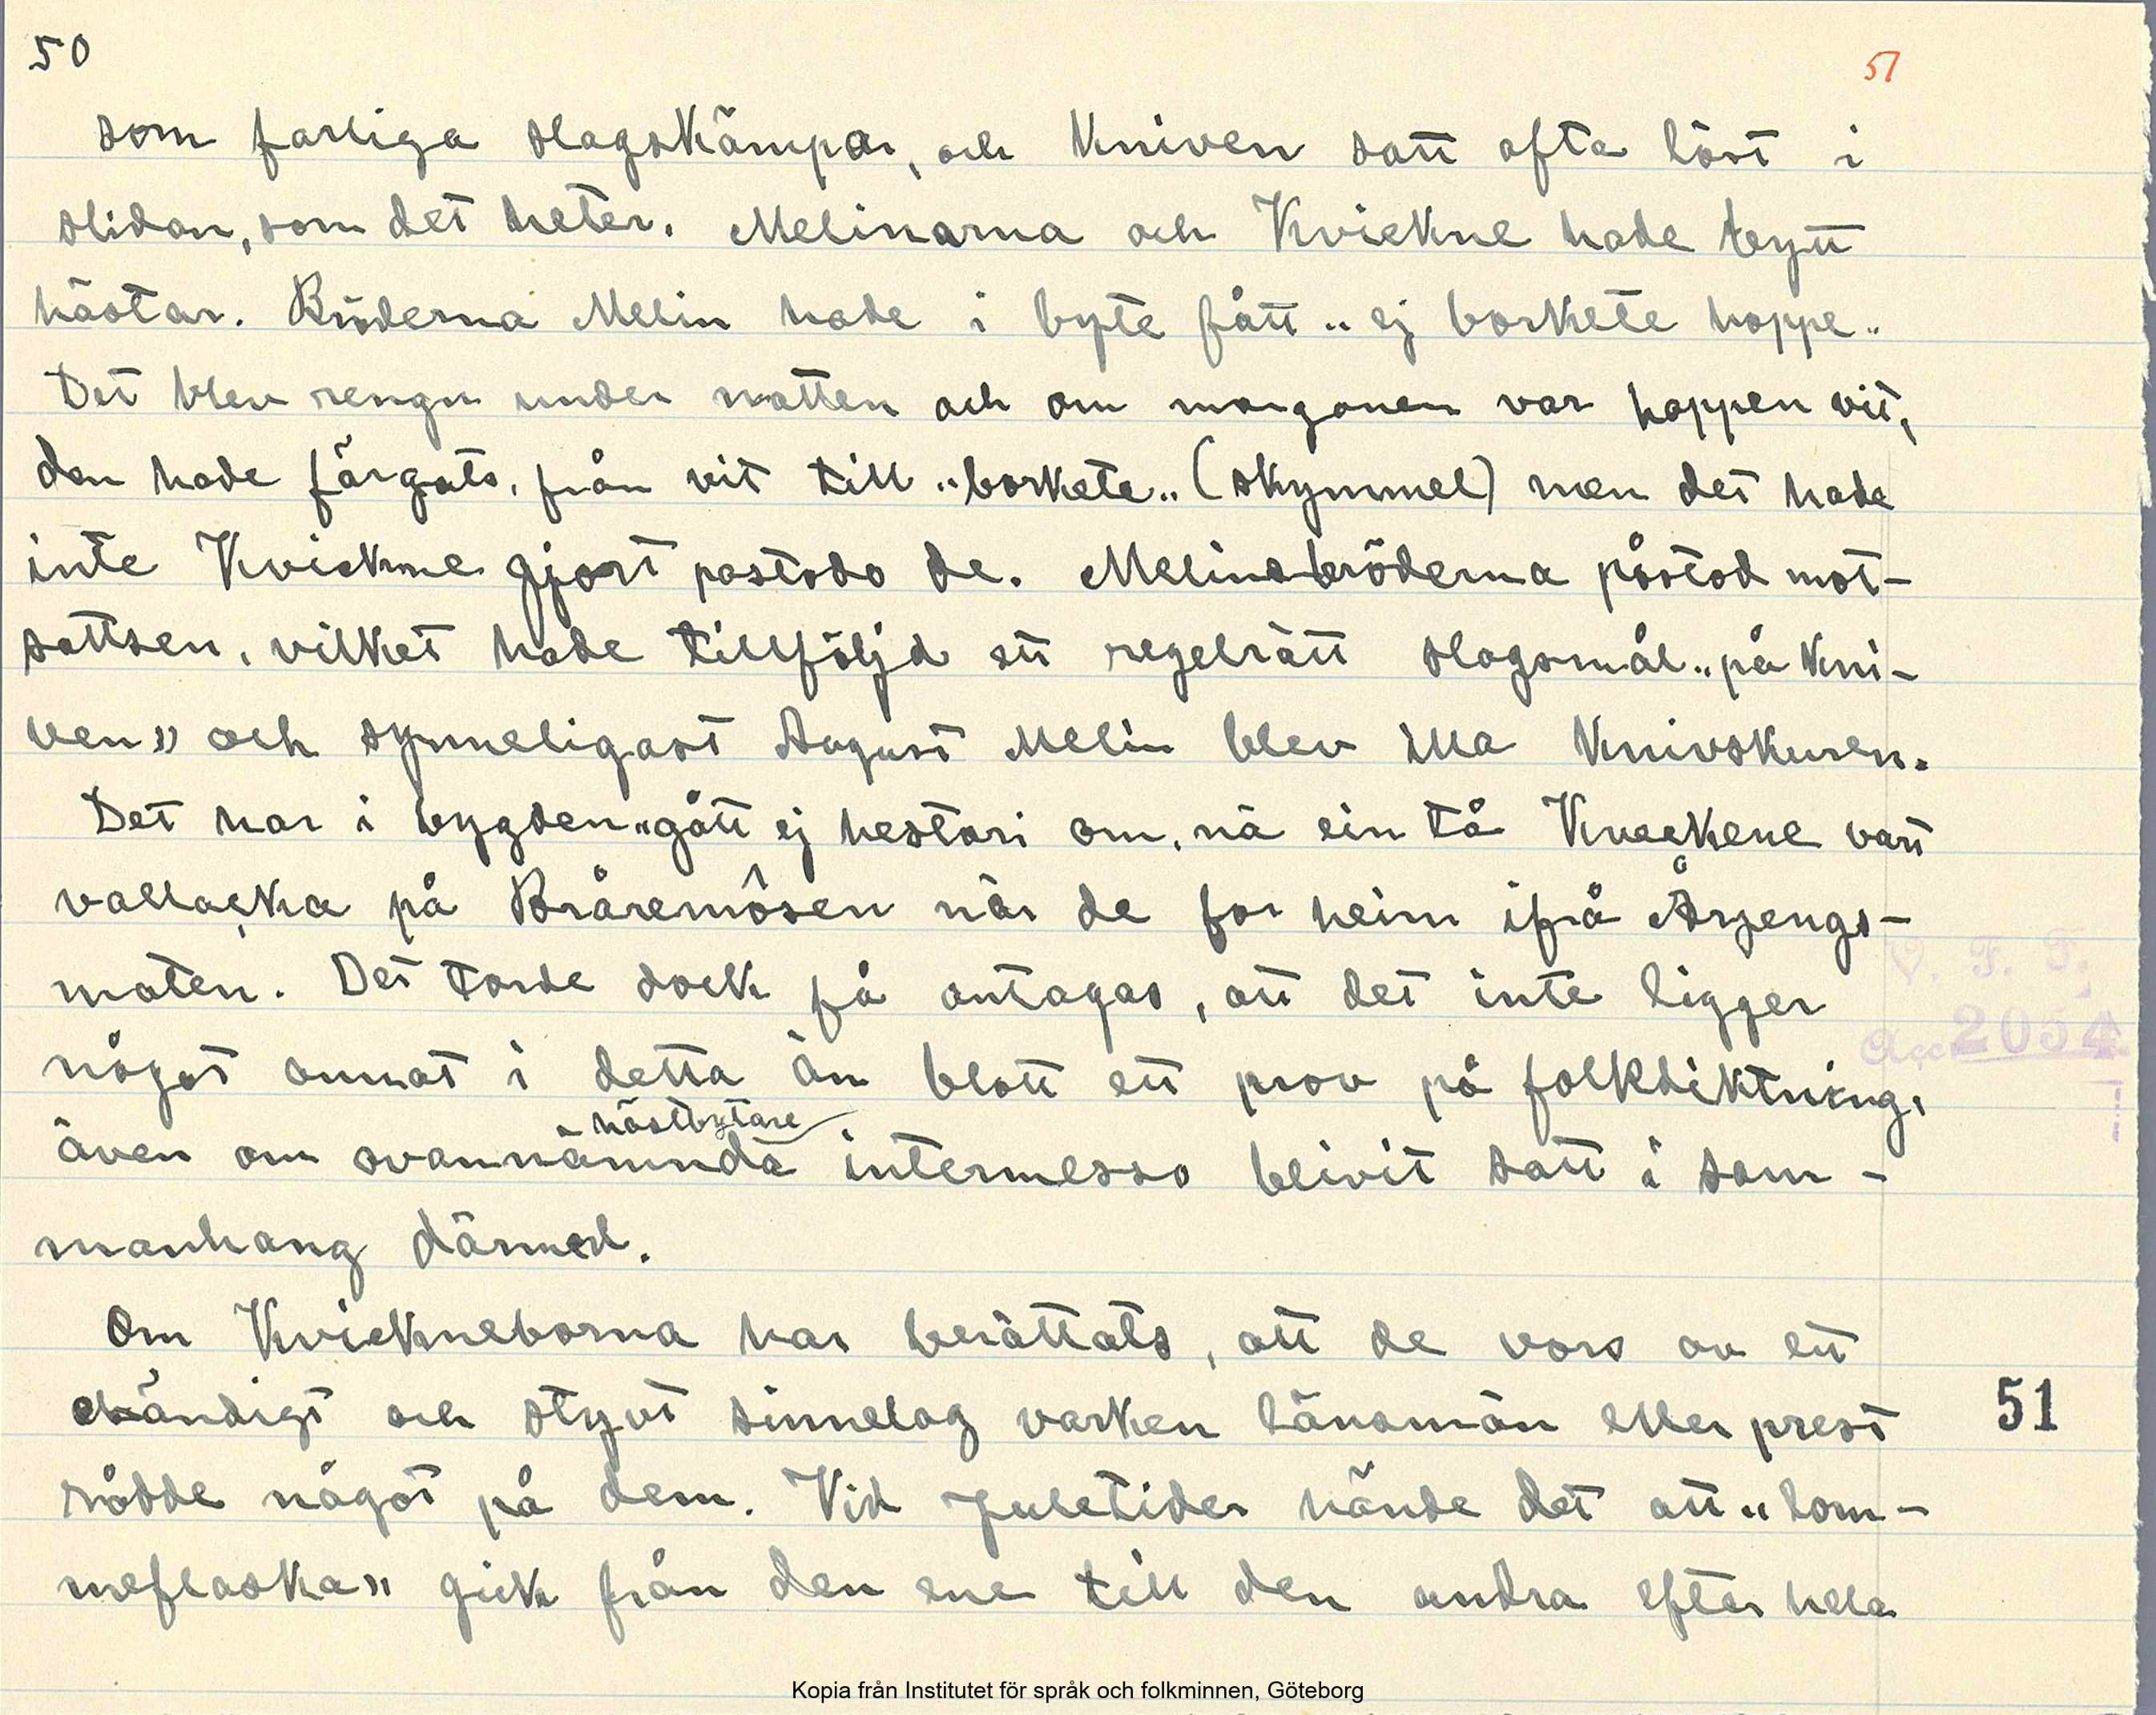 50
51
som farliga slagskämpar, och kniven satt ofta löst i
slidan, som det heter. Melinarna och Kvickne hade bytt
hästar. Bröderna Melin hade i byte fått "ej borkete hoppe"
Det blev rengn under natten och om morgonen var hoppen vit,
den hade färgats, från vit till "borkete" (skymmel) men det hade
inte Kvickne gjort påstodo de. Melinsbröderna påstod mot-
sattsen, vilket hade tillföljd ett regelrätt slagsmål "på kni-
ven" och synneligast August Melin blev illa knivskuren.
Det har i bygden "gått ej hestori om, nä ein tå Kveckene vart
vallacka på Bråremôsen när de for heim ifrå Årjengs-
maten. Det torde dock få antagas, att det inte ligger
något annat i detta än blott ett prov på folkdiktning,
hästbytare
även om ovannämnda intermesso blivit satt i sam-
manhang därmed.
Om Kvickneborna har berättats, att de voro av ett
händigt och styvt sinnelag varken länsmän eller prest
rådde något på dem. Vid Juletider hände det att "lom-
meflaska" gick från den ene till den andra efter hela
51
V. F. F.
Acc 2054
Kopia från Institutet för språk och folkminnen, Göteborg